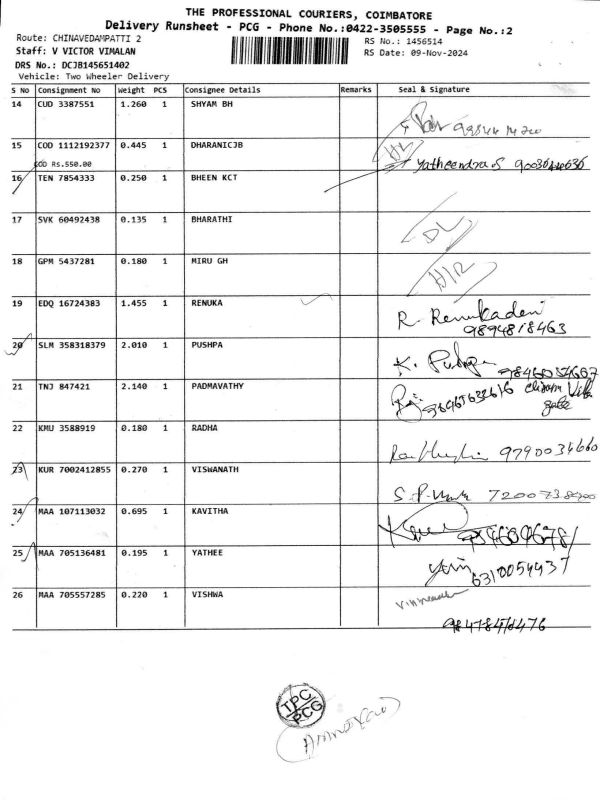 THE PROFESSIONAL COURIERS, COIMBATORE
Delivery Runsheet - PCG - Phone No.:0422-3505555 - Page No.:2
Route: CHINAVEDAMPATTI 2
RS No.: 1456514
Staff: V VICTOR VIMALAN
RS Date: 09-Nov-2024
DRS No.: DCJB145651402
Vehicle: Two Wheeler Delivery
S No Consignment No Weight PCS Consignee Details Remarks Seal & Signature
14 CUD 3387551 1.260 1 SHYAM BH
15 COD 1112192377 0.445 1 DHARANICJB
COD Rs.550.00
Yatheendra S
16 TEN 7854333 0.250 1 BHEEN KCT
17 SVK 60492438 0.135 1 BHARATHI
DL
18 GPM 5437281 0.180 1 MIRU GH
19 EDQ 16724383 1.455 1 RENUKA
R. Renukadevi
9894818463
20 SLM 358318379 2.010 1 PUSHPA
K. Pushpa
21 TNJ 847421 2.140 1 PADMAVATHY
22 KMU 3588919 0.180 1 RADHA
9790034660
23 KUR 7002412855 0.270 1 VISWANATH
24 MAA 107113032 0.695 1 KAVITHA
25 MAA 705136481 0.195 1 YATHEE
6310054937
26 MAA 705557285 0.220 1 VISHWA
TPC
PCG